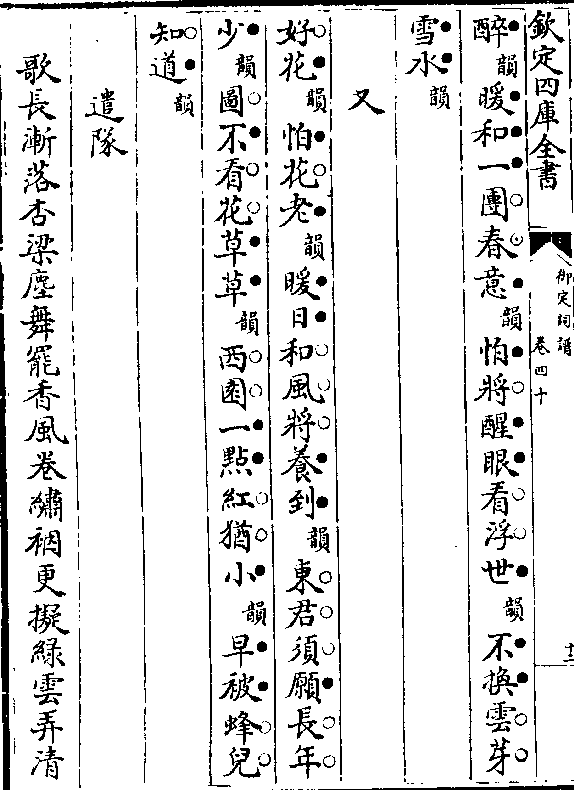 欽定四庫全書
御定詞譜
卷四十
十二
醉韻暖和一團春意韻怕將醒眼看浮世韻不換雲芽
雪水韻
又
好花韻怕花老韻暖日和風將養到韻東君須願長年
少韻圖不看花草草韻西園一點紅猶小韻早被蜂兒
知道韻
遣隊
歌長漸落杏梁塵舞罷香風卷繡裀更擬綠雲弄清